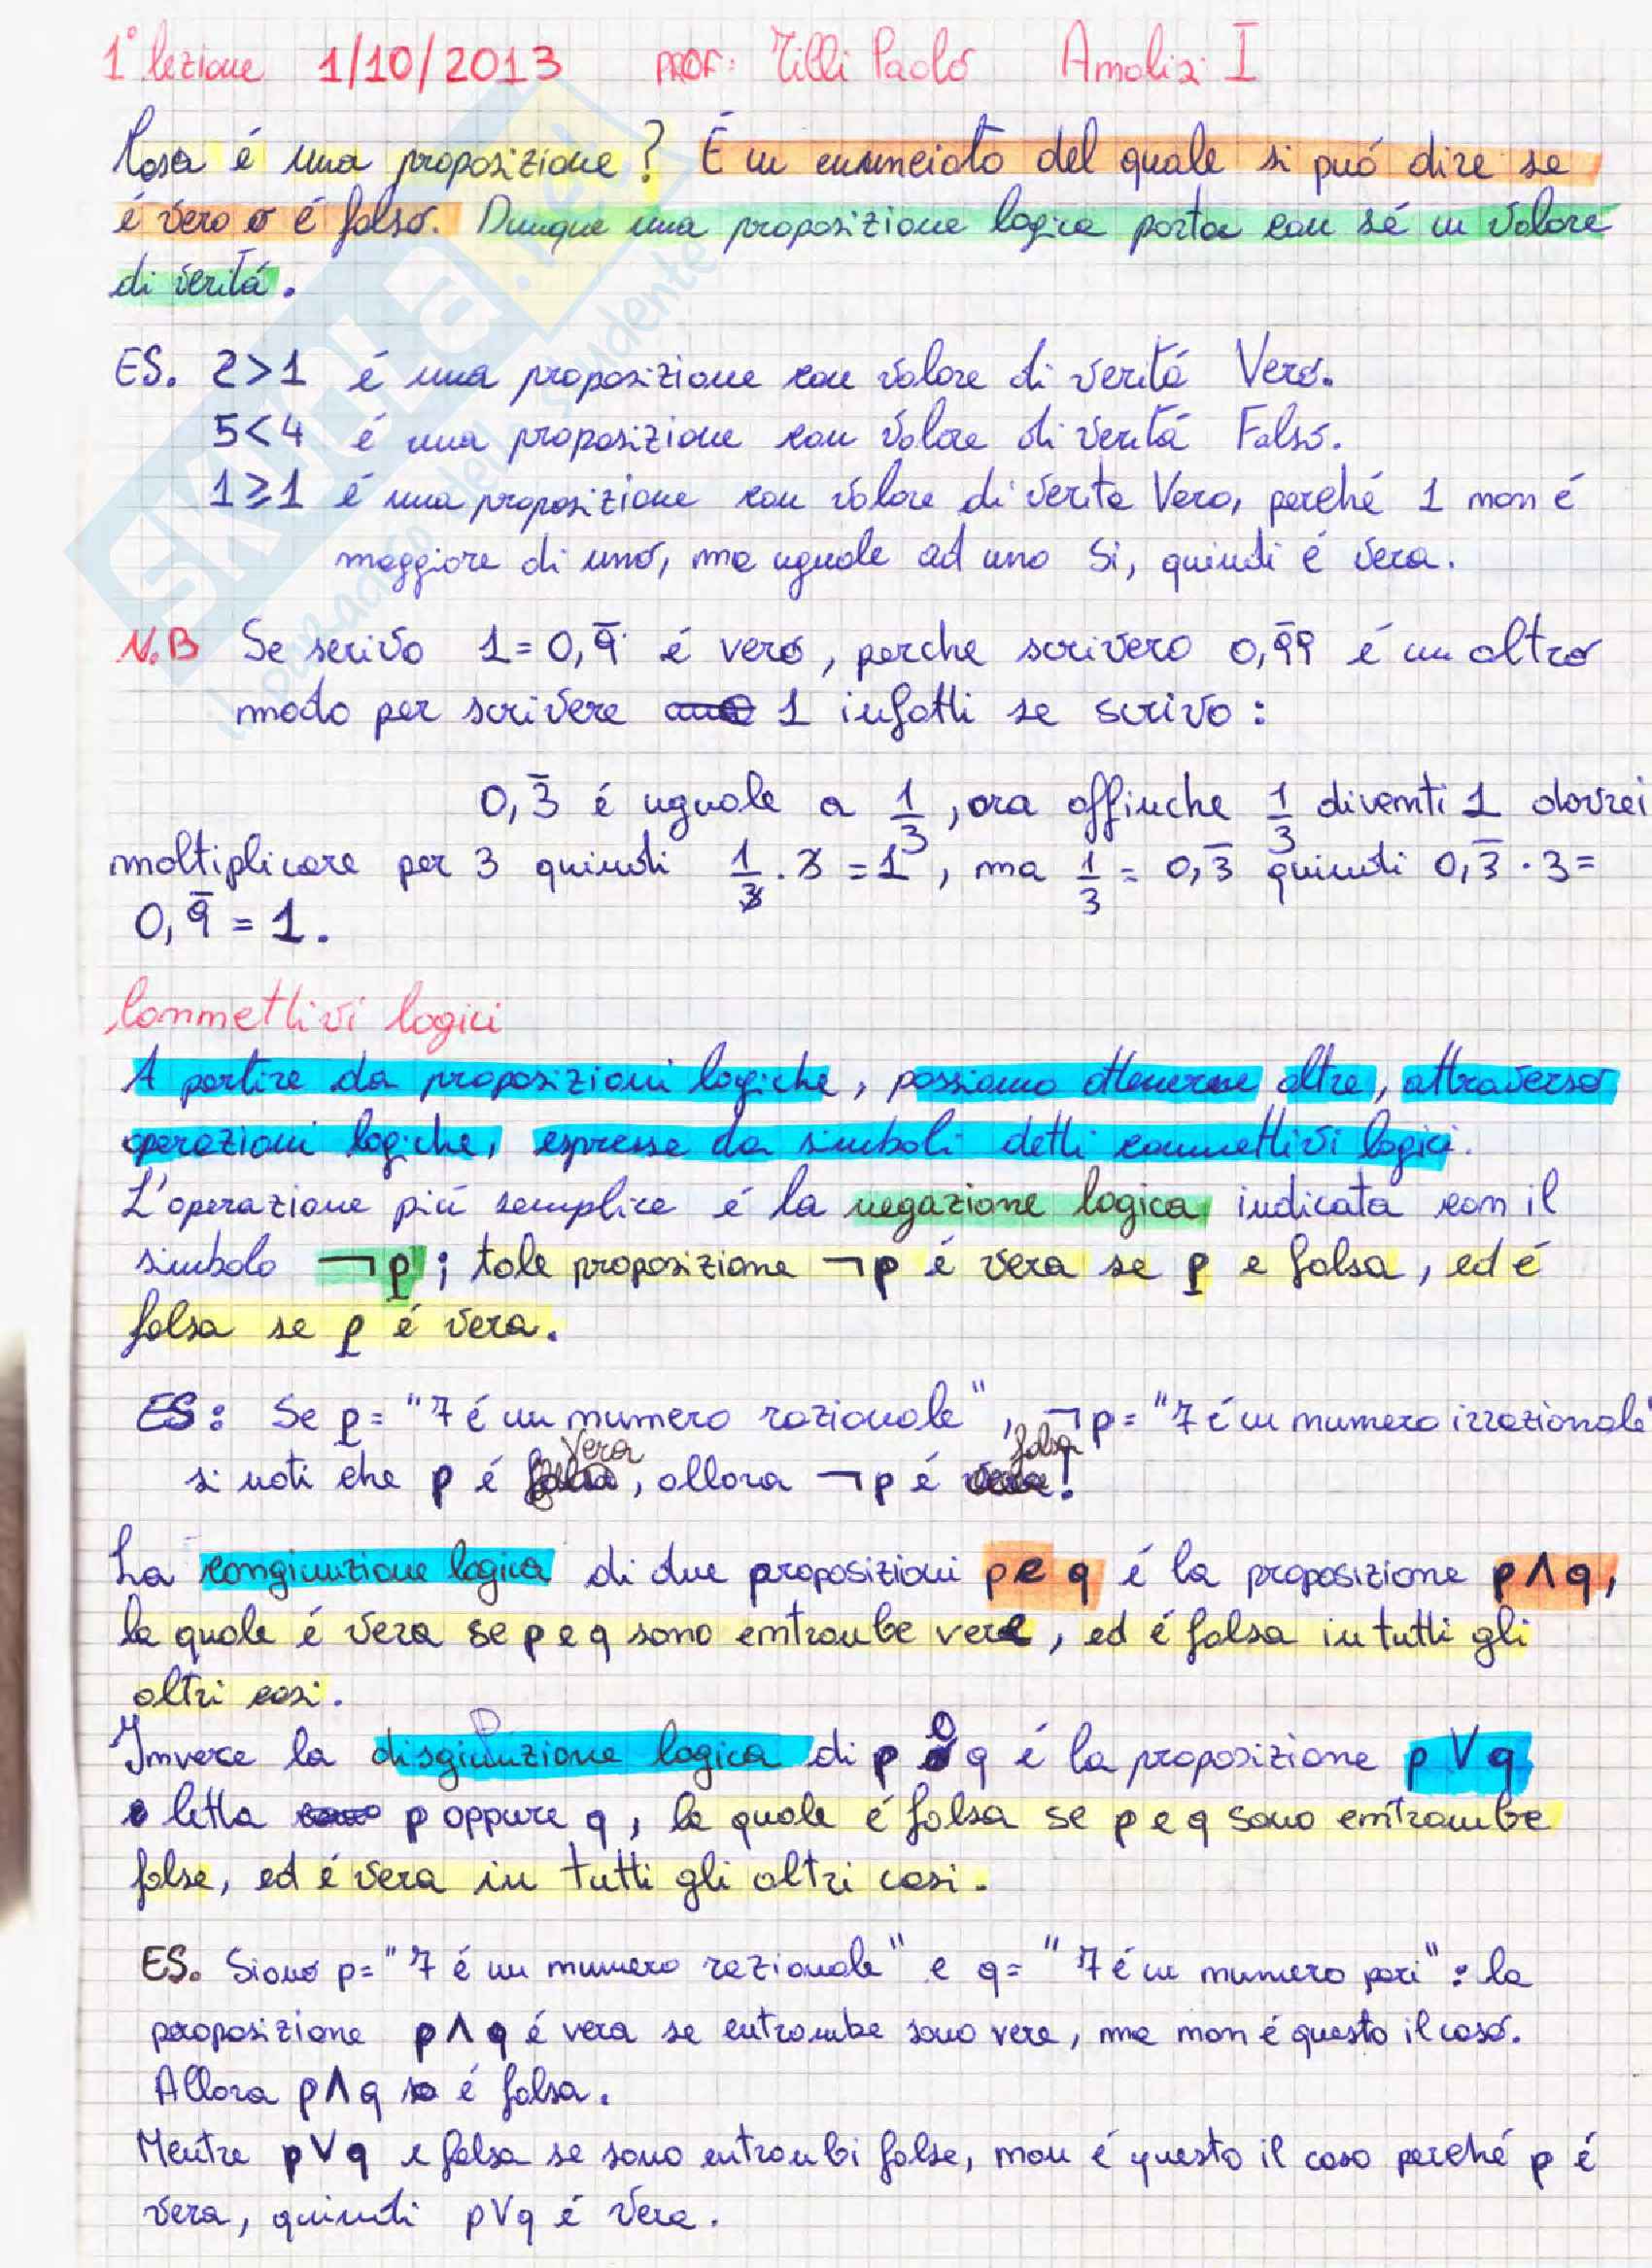 1° lezione 1/10/2013 PROF: Tilli Paolo Analisi I
Cosa é una proposizione? É un enunciato del quale si puó dire se
é vero o é falso. Dunque una proposizione logica porta con sé un valore
di veritá.
ES. 2>1 é una proposizione con valore di veritá Vero.
5<4 é una proposizione con valore di veritá Falso.
1≥1 é una proposizione con valore di verita Vero, perché 1 non é
maggiore di uno, ma uguale ad uno Si, quindi é vera.
N.B Se scrivo 1=0,9̄ é vero, perche scrivero 0,9̄9 é un altro
modo per scrivere 1 infatti se scrivo:
0,3̄ é uguale a 1/3, ora affinche 1/3 diventi 1 dovrei
moltiplicare per 3 quindi 1/3 · 3 = 1, ma 1/3 = 0,3̄ quindi 0,3̄ · 3 =
0,9̄ = 1.
Connettivi logici
A partire da proposizioni logiche, possiamo ottenerne altre, attraverso
operazioni logiche, espresse da simboli detti connettivi logici.
L'operazione piú semplice é la negazione logica indicata con il
simbolo ¬p; tale proposizione ¬p é vera se p e falsa, ed é
falsa se p é vera.
ES: Se p= "7 é un numero razionale", ¬p= "7 é un numero irrazionale"
si noti che p é vera, allora ¬p é falsa!
La congiunzione logica di due proposizioni p e q é la proposizione p∧q,
la quale é vera se p e q sono entrambe vere, ed é falsa in tutti gli
altri casi.
Invece la disgiunzione logica di p o q é la proposizione p∨q
letta p oppure q, la quale é falsa se p e q sono entrambe
false, ed é vera in tutti gli altri casi.
ES. Siano p= "7 é un numero razionale" e q= "7 é un numero pari": la
proposizione p∧q é vera se entrambe sono vere, ma non é questo il caso.
Allora p∧q é falsa.
Mentre p∨q e falsa se sono entrambi false, non é questo il caso perché p é
vera, quindi p∨q é vera.
SKUOLA.net
il paradiso dello studente